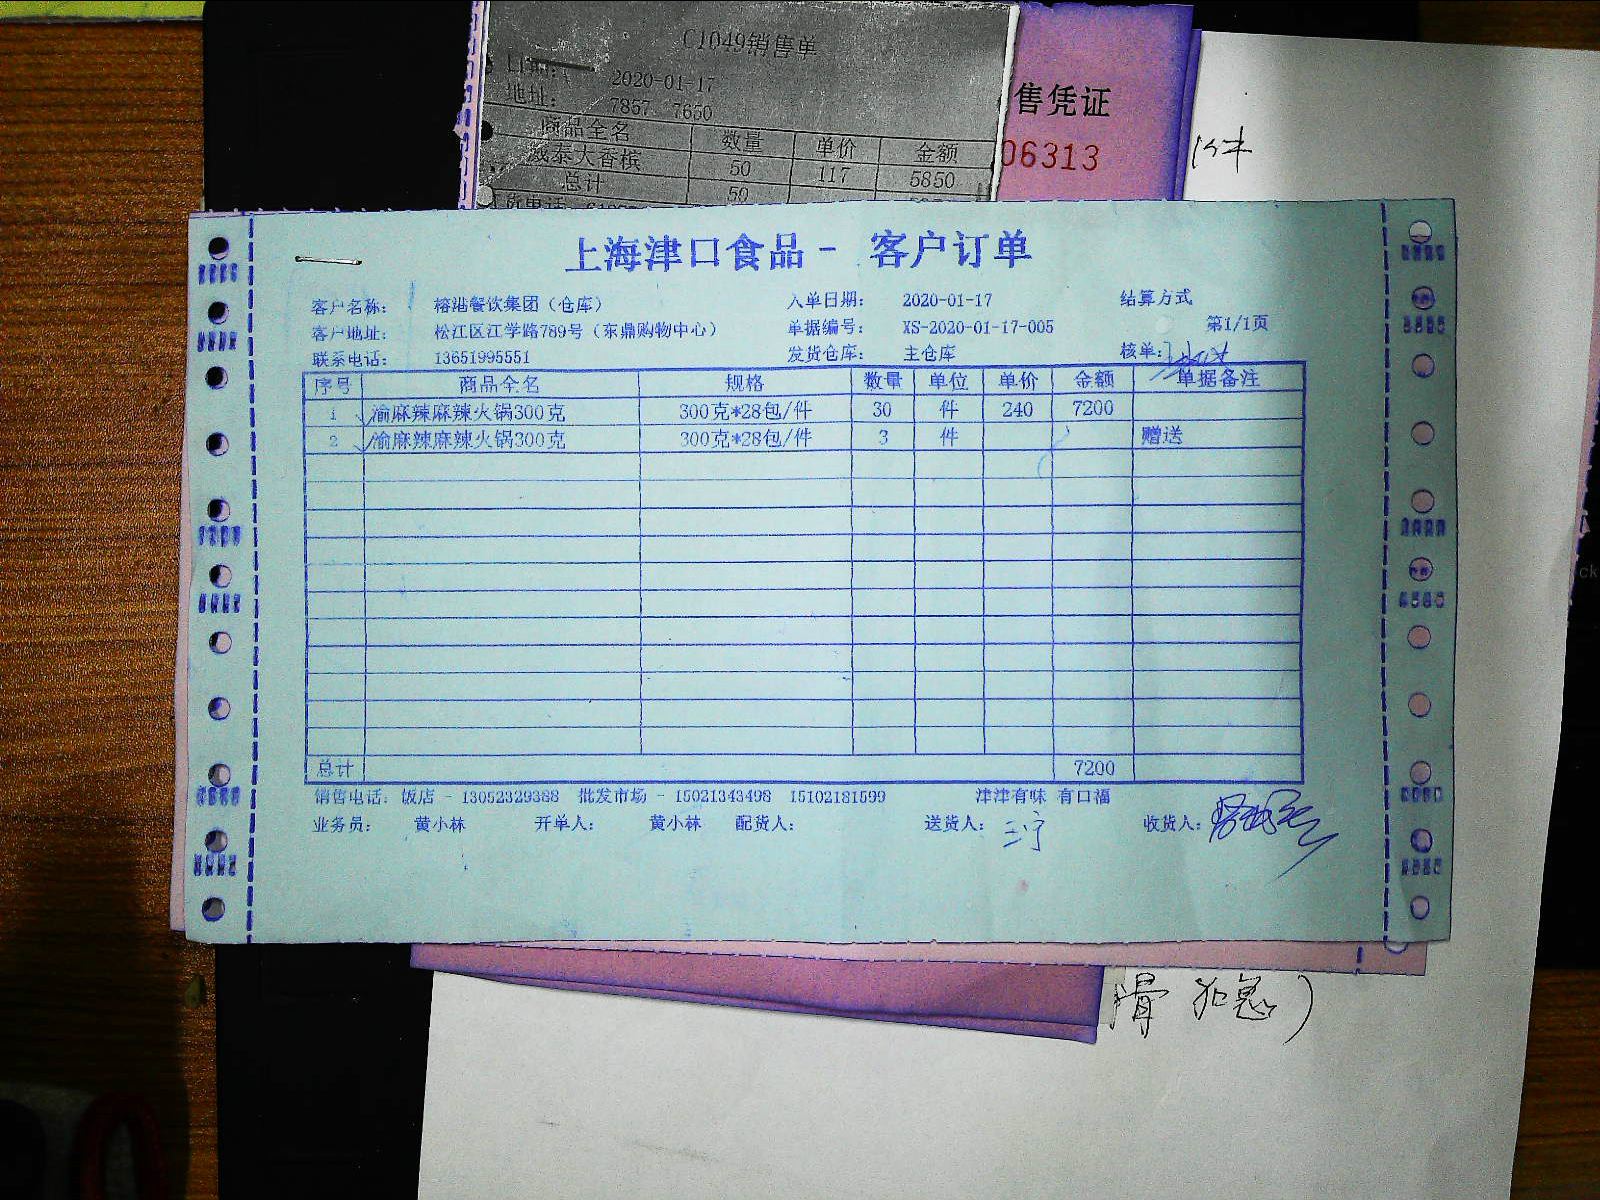 C1049销售单
日期: 2020-01-17
地址: 7857 7650
商品全名 数量 单价 金额
威泰大香槟 50 117 5850
总计 50
售凭证
06313
上海津口食品- 客户订单
客户名称: 榕港餐饮集团(仓库) 入单日期: 2020-01-17 结算方式
客户地址: 松江区江学路789号(东鼎购物中心) 单据编号: XS-2020-01-17-005 第1/1页
联系电话: 13651995551 发货仓库: 主仓库 核单:
序号 商品全名 规格 数量 单位 单价 金额 单据备注
1 渝麻辣麻辣火锅300克 300克*28包/件 30 件 240 7200
2 渝麻辣麻辣火锅300克 300克*28包/件 3 件 赠送
总计 7200
销售电话: 饭店 - 13052329388 批发市场 - 15021343498 15102181599 津津有味 有口福
业务员: 黄小林 开单人: 黄小林 配货人: 送货人: 王宁 收货人: